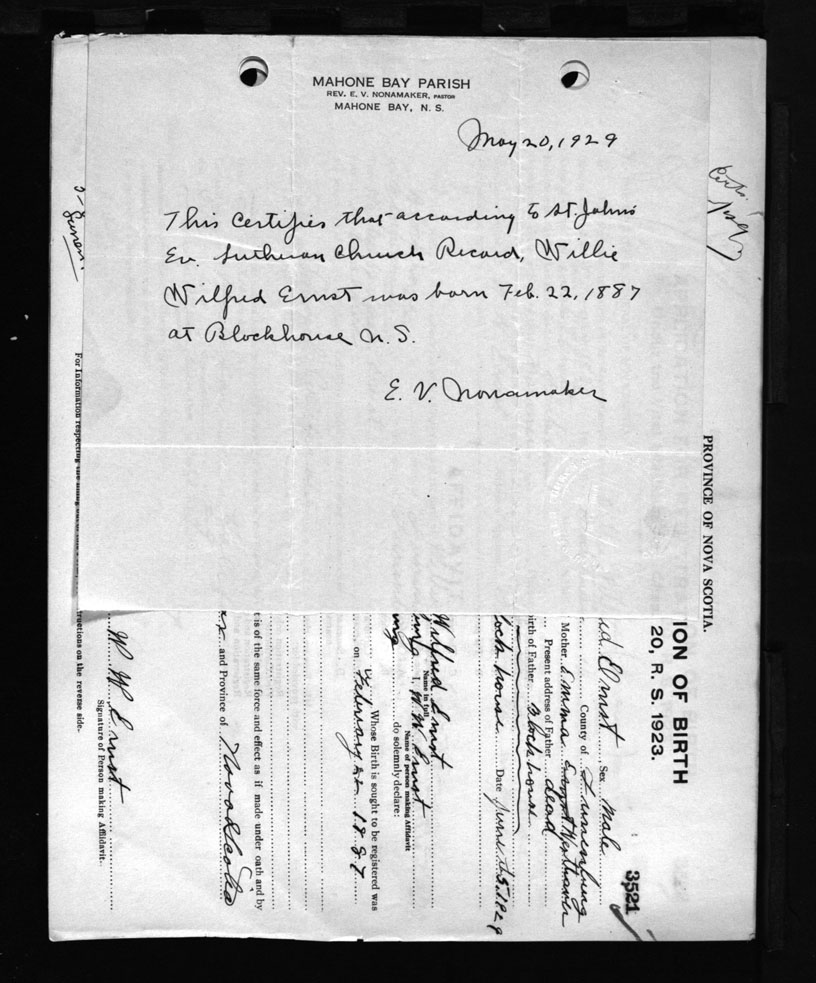 MAHONE BAY PARISH
REV. E. V. NONAMAKER, PASTOR
MAHONE BAY, N. S.
May 20, 1929
This certifies that according to St. John's
Ev. Lutheran Church Record, Willie
Wilfred Ernst was born Feb. 22, 1887
at Blockhouse N.S.
E. V. Nonamaker
PROVINCE OF NOVA SCOTIA.
ION OF BIRTH
20, R. S. 1923.
3521
id Ernst Sex Male
County of Lunenburg
Mother Emma Ernst
Present address of Father dead
irth of Father Blockhouse
lock house Date June 1929
Wilfred Ernst
Name in full
I, W W Ernst
Name of person making Affidavit
do solemnly declare:
Whose Birth is sought to be registered was
on February 22 1887
t is of the same force and effect as if made under oath and by
and Province of Nova Scotia
W W Ernst
Signature of Person making Affidavit.
For Information respecting the
tructions on the reverse side.